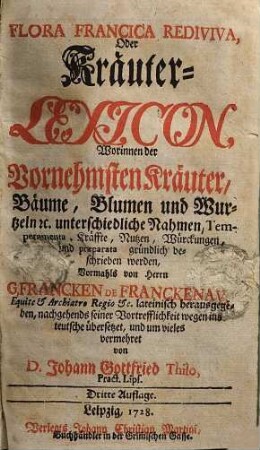 FLORA FRANCICA REDIVIVA,
Oder
Kräuter-
LEXICON,
Worinnen der
Vornehmsten Kräuter/
Bäume, Blumen und Wur-
tzeln ꝛc. unterschiedliche Nahmen, Tem-
peramenta, Kräffte, Nutzen, Würckungen,
und præparata gründlich be-
schrieben werden,
Vormahls von Herrn
G. FRANCKEN DE FRANCKENAU,
Equite & Archiatro Regio &c. lateinisch herausgege-
ben, nachgehends seiner Vortrefflichkeit wegen ins
teutsche übersetzet, und um vieles
vermehret
von
D. Johann Gottfried Thilo,
Pract. Lips.
Dritte Auflage.
Leipzig, 1728.
Verlegts Johann Christian Martini,
Buchhändler in der Grimischen Gasse.